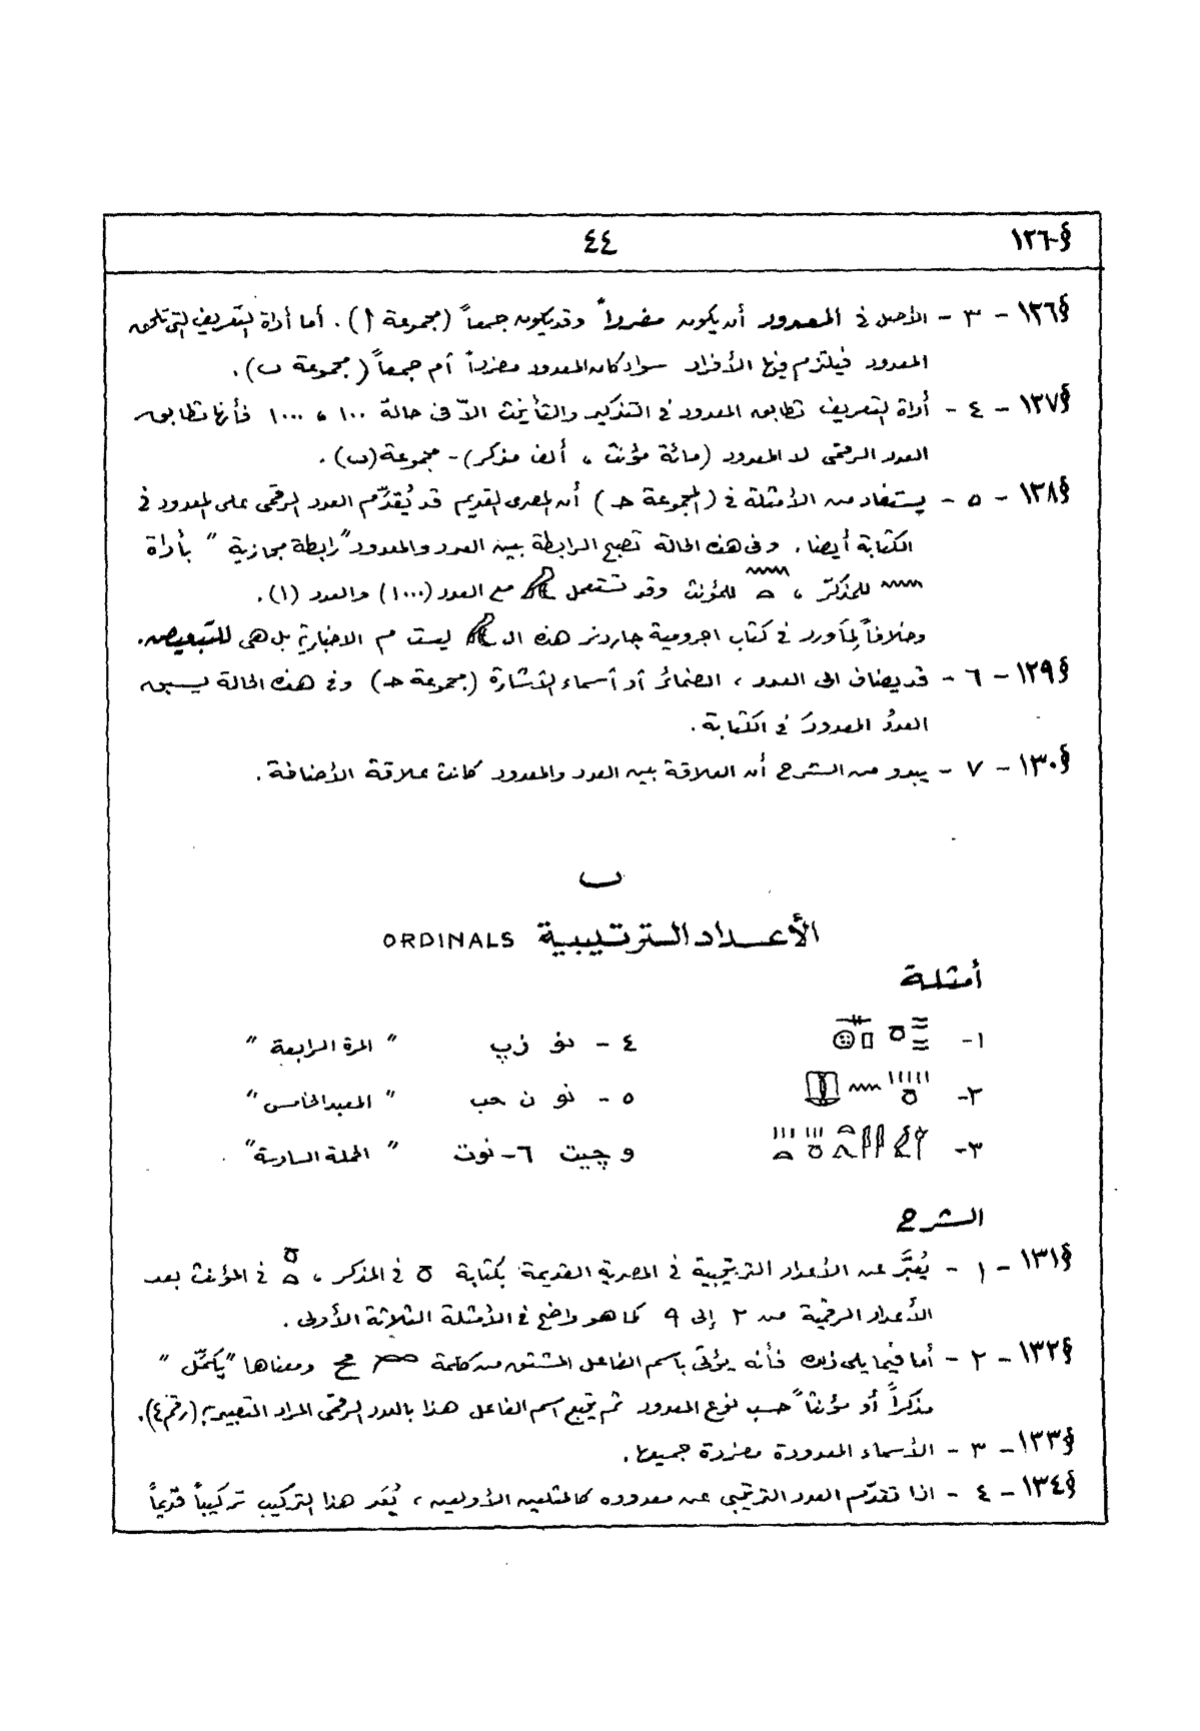 §١٢٦ ٤٤
§١٢٦ - ٣ - الأصل فى المعدود أن يكون مفرداً وقد يكون جمعاً (مجموعة أ). أما أداة التعريف التى تلحق
المعدود فيلتزم فيها الأفراد سواء كان المعدود مفرداً أم جمعاً (مجموعة ب).
§١٢٧ - ٤ - أداة التعريف تطابق المعدود فى التذكير والتأنيث الاّ فى حالة ١٠٠ ، ١٠٠٠ فأنها تطابق
العدد الرقمى لا المعدود (مائة مؤنث ، ألف مذكر) - مجموعة (ب).
§١٢٨ - ٥ - يستفاد من الأمثلة فى (المجموعة حـ) أن المصرى القديم قد يُقدّم العدد الرقمى على المعدود فى
الكتابة أيضا. وفى هذه الحالة تصبح الرابطة بين العدد والمعدود "رابطة مجازية" بأداة
𓈖 للمذكّر ، 𓈖𓏏 للمؤنث وقد تستعمل 𓅓 مع العدد (١٠٠٠) والعدد (١).
وخلافاً لِمَا ورد فى كتاب اجرومية جاردنر هذه ال 𓅓 ليست م الاخبارية بل هى للتبعيض.
§١٢٩ - ٦ - قد يضاف الى العدد ، الضمائر أو أسماء الأشارة (مجموعة حـ) وفى هذه الحالة يسبق
العددُ المعدودَ فى الكتابة.
§١٣٠ - ٧ - يبدو من الشرح أن العلاقة بين العدد والمعدود كانت علاقة الأضافة.
ب
الأعداد الترتيبية ORDINALS
أمثلة
١- ٤ - نو زپ " المرة الرابعة "
٢- ٥ - نو ن حب " العيد الخامس "
٣- وچيت ٦ - نوت " الحملة السادسة "
الشرح
§١٣١ - ١ - يُعبَّر عن الأعداد الترتيبية فى المصرية القديمة بكتابة 𓏌 فى المذكر ، 𓏌𓏏 فى المؤنث بعد
الأعداد الرقمية من ٢ إلى ٩ كما هو واضح فى الأمثلة الثلاثة الأولى.
§١٣٢ - ٢ - أما فيما يلى ذلك فأنه يؤتى باسم الفاعل المشتق من كلمة مح ومعناها "يكمّل"
مذكراً أو مؤنثاً حسب نوع المعدود ثم يتبع اسم الفاعل هذا بالعدد الرقمى المراد التعبير به (رقم ٤).
§١٣٣ - ٣ - الأسماء المعدودة مفردة جميعها.
§١٣٤ - ٤ - اذا تقدّم العدد الترتيبى عن معدوده كالمثلين الأولين ، يُعَد هذا التركيب تركيباً قديماً